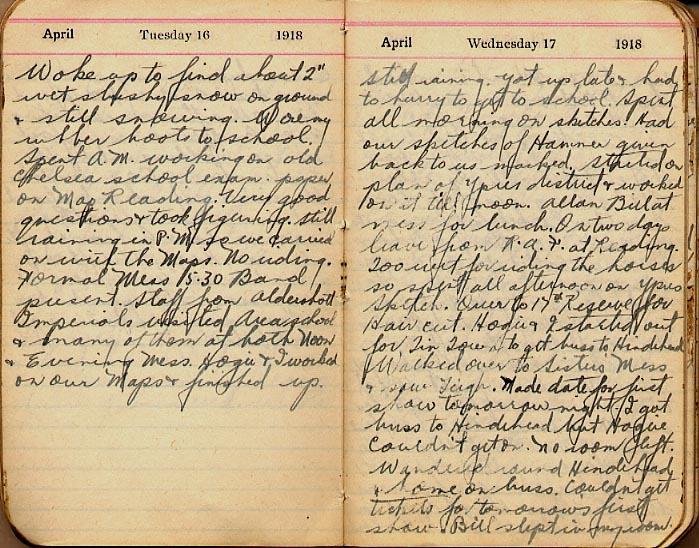 April Tuesday 16 1918
Woke up to find about 2"
wet slushy snow on ground
& still snowing. Wore my
rubber boots to school.
Spent A.M. working on old
Chelsea school exam. paper
on Map Reading. Very good
questions & took figuring. Still
raining in P.M. so we carried
on with the Maps. No riding.
Normal Mess 15:30 Band
present. Staff from Aldershott
Imperials visited Area school
& many of them at both Noon
& Evening Mess. Hogue & I worked
on our Maps & finished up.
April Wednesday 17 1918
Still raining. Got up late & had
to hurry to get to school. Spent
all morning on sketches. Had
our sketches of Hammer given
back to us marked, started on
plan of Ypres district & worked
on it till noon. Allan Bulat
mess for lunch. On two days
leave from R.A.F. at Reading.
Too wet for riding the horses
so spent all afternoon on Ypres
sketch. Over to 17th Reserve for
hair cut. Hogue & I started out
for Tin Town to get buss to Hindehead
Walked over to Sisters Mess
& saw Leigh. Made date for first
show tomorrow night. I got
buss to Hindehead but Hogue
couldn't get on. No room left.
Wandered round Hindehead
& home on buss. Couldn't get
tickets for tomorrows first
show. Bill slept in my room.